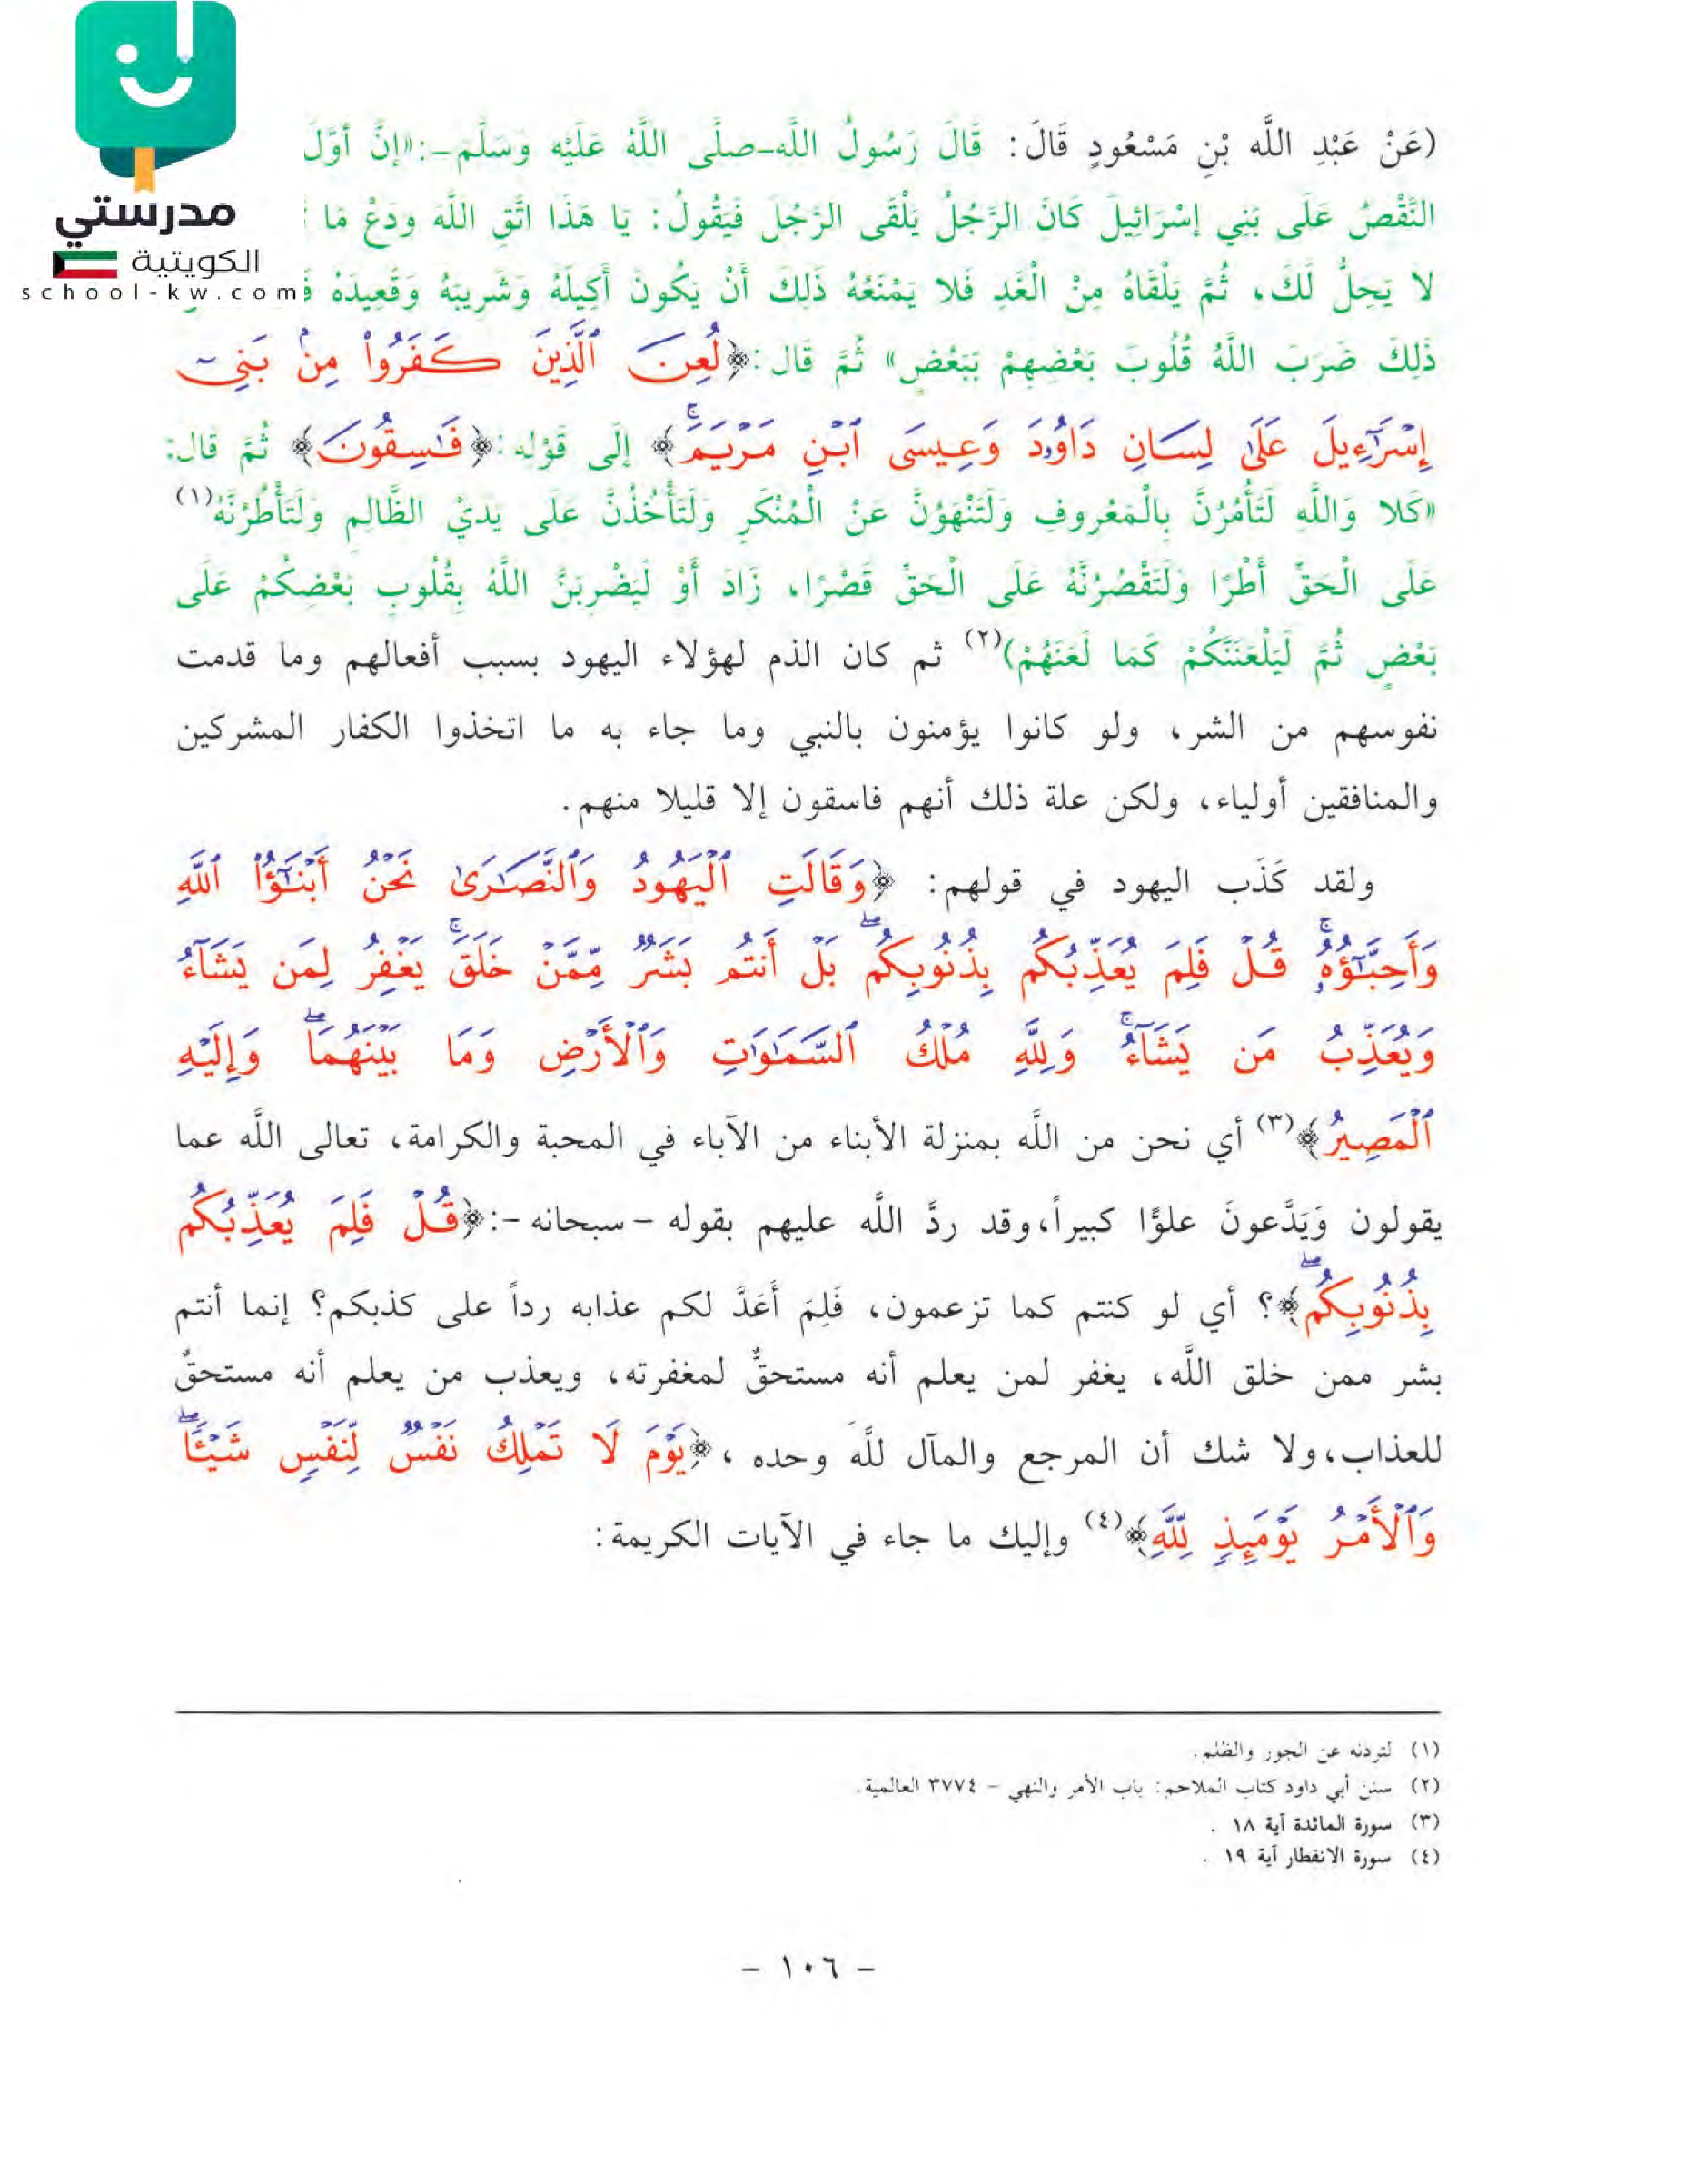 مدرستي
الكويتية
school-kw.com
(عَنْ عَبْدِ اللَّه بْنِ مَسْعُودٍ قَالَ: قَالَ رَسُولُ اللَّه-صلَّى اللَّهُ عَلَيْه وَسَلَّم-:«إنَّ أوَّلَ
النَّقْصُ عَلَى بَنِي إسْرَائِيلَ كَانَ الرَّجُلُ يَلْقَى الرَّجُلَ فَيَقُولُ: يَا هَذَا اتَّقِ اللَّهَ ودَعْ مَا
لَا يَحِلُّ لَكَ، ثُمَّ يَلْقَاهُ مِنْ الْغَدِ فَلا يَمْنَعُهُ ذَلِكَ أَنْ يَكُونَ أَكِيلَهُ وَشَرِيبَهُ وَقَعِيدَهُ
ذَلِكَ ضَرَبَ اللَّهُ قُلُوبَ بَعْضِهِمْ بَبَعْضٍ» ثُمَّ قَال: ﴿لُعِنَ ٱلَّذِينَ كَفَرُواْ مِنۢ بَنِيٓ
إِسْرَٰٓءِيلَ عَلَىٰ لِسَانِ دَاوُۥدَ وَعِيسَى ٱبْنِ مَرْيَمَۚ﴾ إلَى قَوْله: ﴿فَٰسِقُونَ﴾ ثُمَّ قَال:
«كَلا وَاللَّهِ لَتَأْمُرُنَّ بِالْمَعْروفِ وَلَتَنْهَوُنَّ عَنْ الْمُنْكَرِ وَلَتَأْخُذُنَّ عَلَى يَدَيْ الظَّالِمِ وَلَتَأْطُرُنَّهُ(١)
عَلَى الْحَقِّ أَطْرًا وَلَتَقْصُرُنَّهُ عَلَى الْحَقِّ قَصْرًا، زَادَ أَوْ لَيَضْرِبَنَّ اللَّهُ بِقُلُوبِ بَعْضِكُمْ عَلَى
بَعْضٍ ثُمَّ لَيَلْعَنَنَّكُمْ كَمَا لَعَنَهُمْ)(٢) ثم كان الذم لهؤلاء اليهود بسبب أفعالهم وما قدمت
نفوسهم من الشر، ولو كانوا يؤمنون بالنبي وما جاء به ما اتخذوا الكفار المشركين
والمنافقين أولياء، ولكن علة ذلك أنهم فاسقون إلا قليلا منهم.
ولقد كَذَب اليهود في قولهم: ﴿وَقَالَتِ ٱلْيَهُودُ وَٱلنَّصَٰرَىٰ نَحْنُ أَبْنَٰٓؤُاْ ٱللَّهِ
وَأَحِبَّٰٓؤُهُۥۚ قُلْ فَلِمَ يُعَذِّبُكُم بِذُنُوبِكُمۖ بَلْ أَنتُم بَشَرٌ مِّمَّنْ خَلَقَۚ يَغْفِرُ لِمَن يَشَآءُ
وَيُعَذِّبُ مَن يَشَآءُۚ وَلِلَّهِ مُلْكُ ٱلسَّمَٰوَٰتِ وَٱلْأَرْضِ وَمَا بَيْنَهُمَاۖ وَإِلَيْهِ
ٱلْمَصِيرُ﴾(٣) أي نحن من اللَّه بمنزلة الأبناء من الآباء في المحبة والكرامة، تعالى اللَّه عما
يقولون وَيَدَّعونَ علوًّا كبيراً، وقد ردَّ اللَّه عليهم بقوله - سبحانه -: ﴿قُلْ فَلِمَ يُعَذِّبُكُم
بِذُنُوبِكُمۖ﴾؟ أي لو كنتم كما تزعمون، فَلِمَ أَعَدَّ لكم عذابه رداً على كذبكم؟ إنما أنتم
بشر ممن خلق اللَّه، يغفر لمن يعلم أنه مستحقٌّ لمغفرته، ويعذب من يعلم أنه مستحقٌ
للعذاب، ولا شك أن المرجع والمآل للَّه وحده ، ﴿يَوْمَ لَا تَمْلِكُ نَفْسٌ لِّنَفْسٍ شَيْـًٔاۖ
وَٱلْأَمْرُ يَوْمَئِذٍ لِّلَّهِ﴾(٤) وإليك ما جاء في الآيات الكريمة:
(١) لتردنه عن الجور والظلم.
(٢) سنن أبي داود كتاب الملاحم: باب الأمر والنهي - ٣٧٧٤ العالمية.
(٣) سورة المائدة آية ١٨ .
(٤) سورة الانفطار آية ١٩ .
- ١٠٦ -